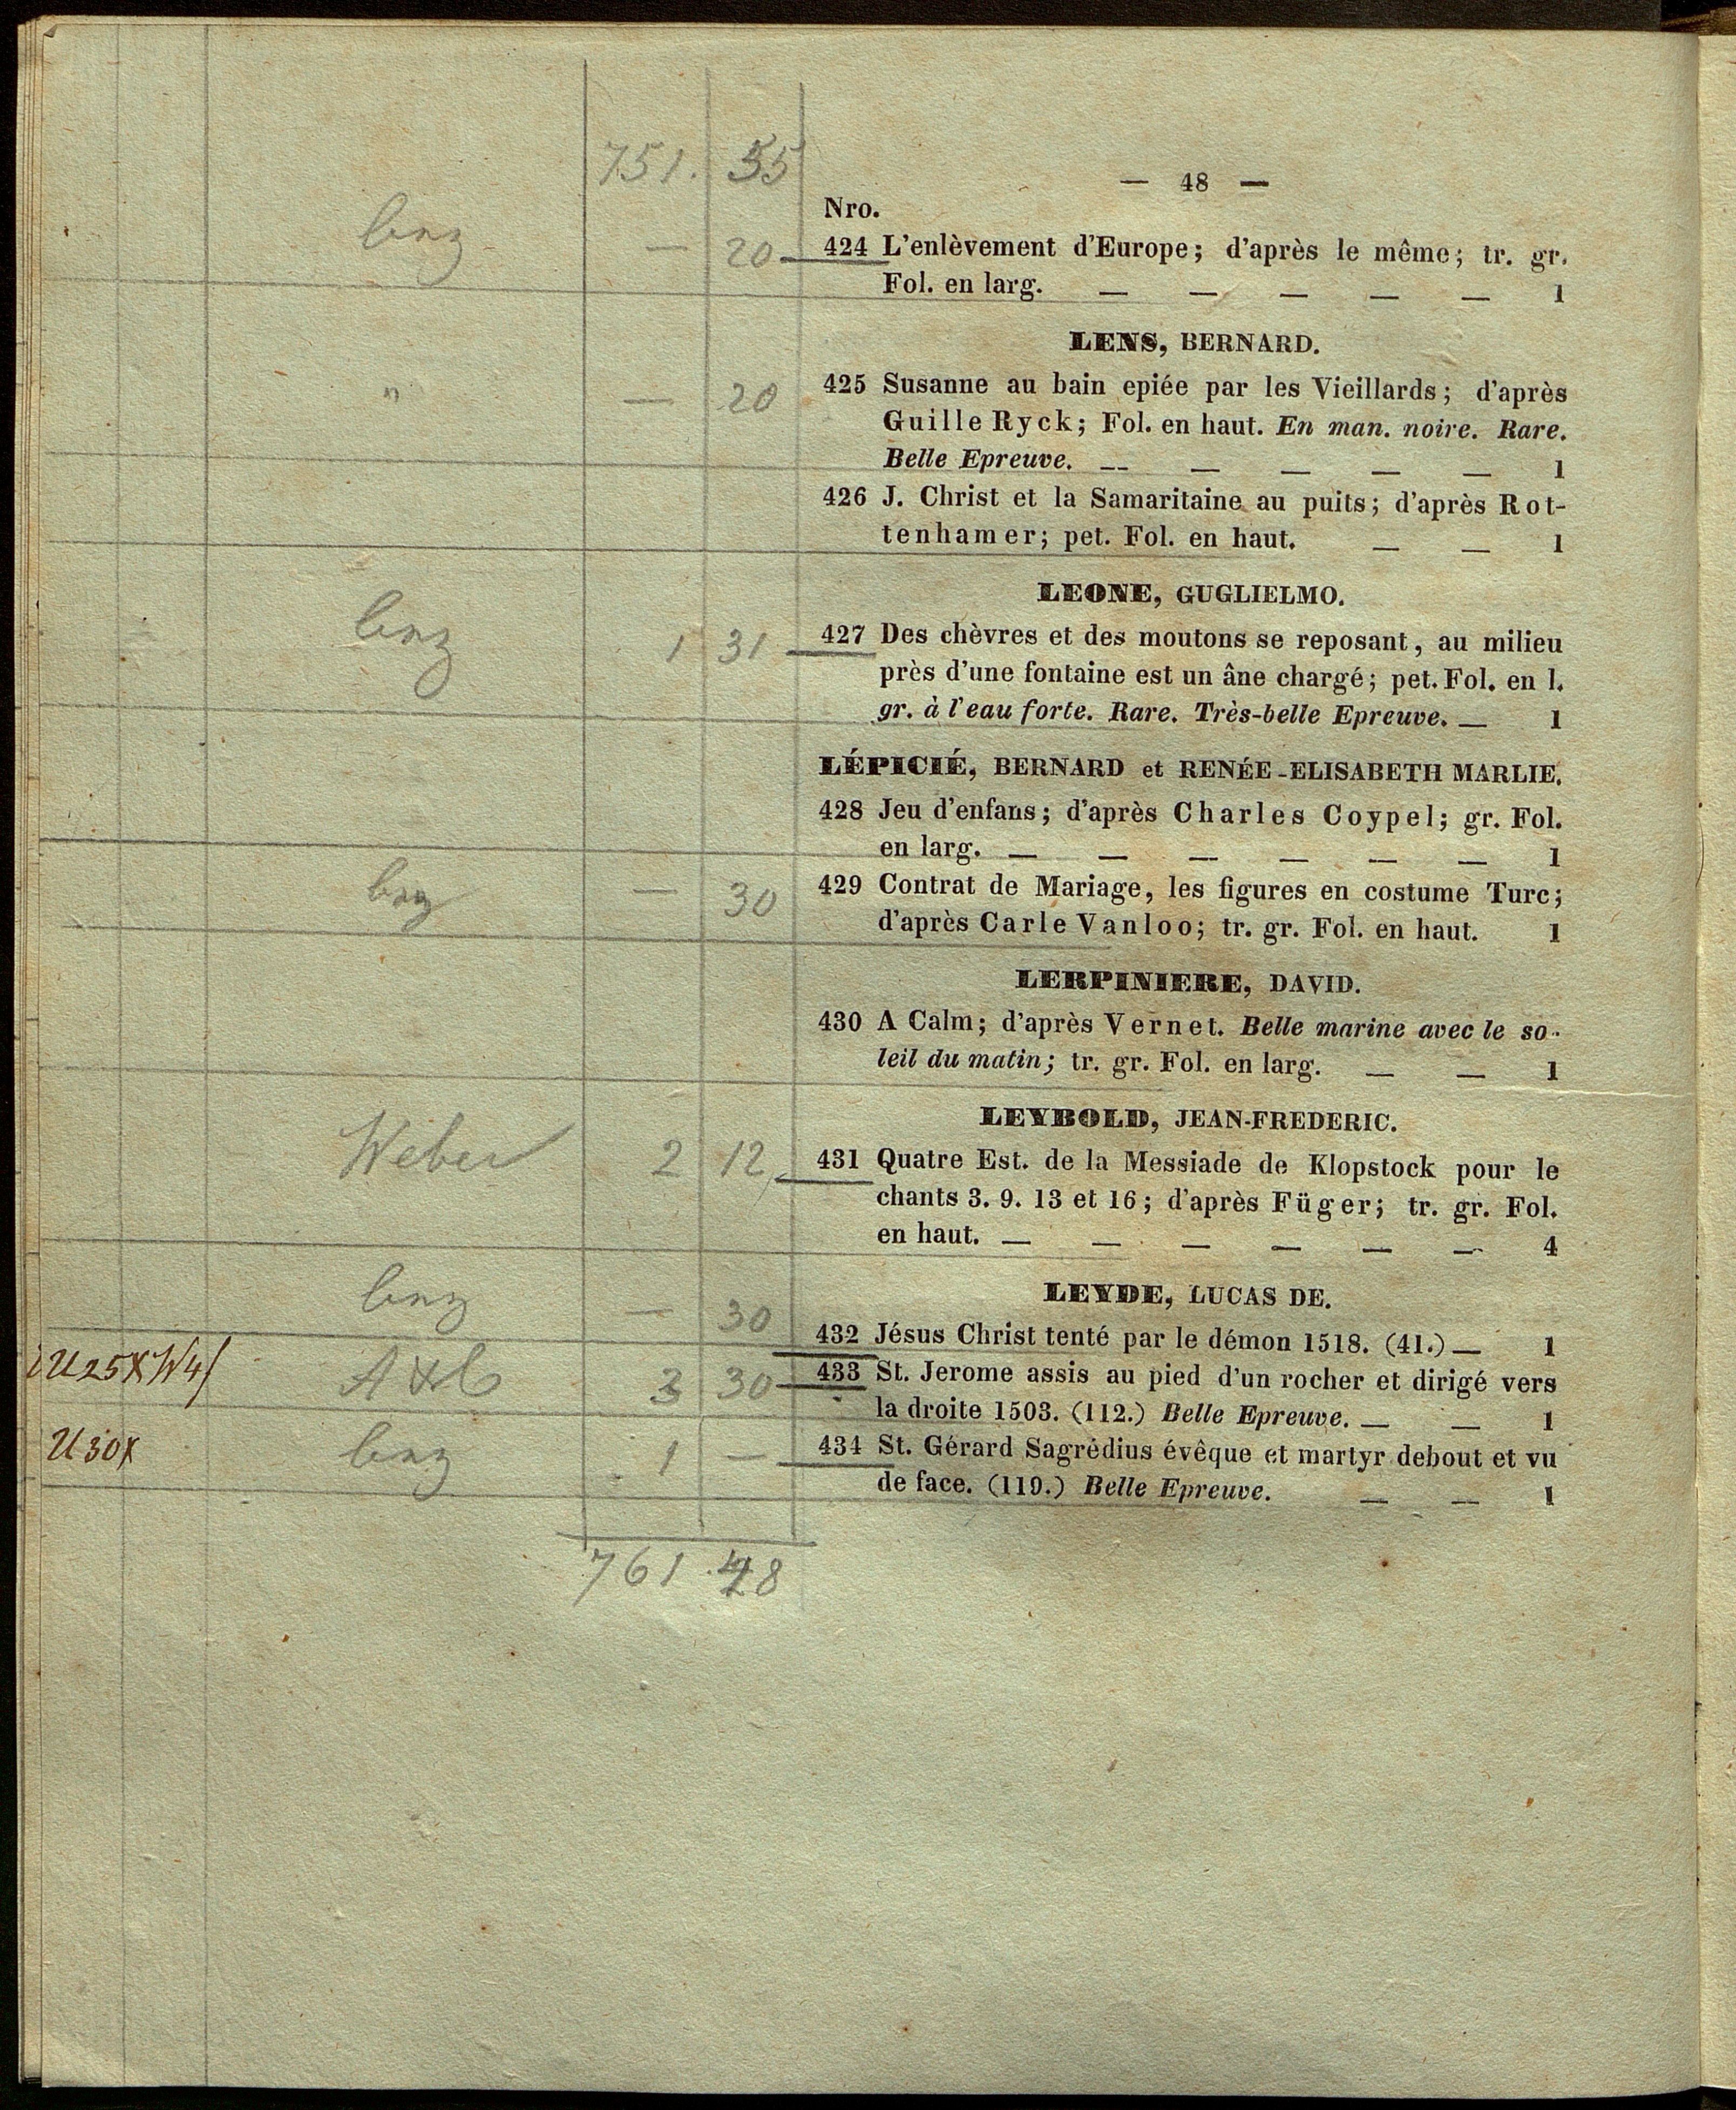 751. 55
— 48 —
Nro.
— 20 424 L'enlèvement d'Europe; d'après le même; tr. gr.
Fol. en larg. — — — — — 1
LENS, BERNARD.
" — 20 425 Susanne au bain epiée par les Vieillards; d'après
Guille Ryck; Fol. en haut. En man. noire. Rare.
Belle Epreuve. — — — — — 1
426 J. Christ et la Samaritaine au puits; d'après Rot-
tenhamer; pet. Fol. en haut. — — 1
LEONE, GUGLIELMO.
1 31 427 Des chèvres et des moutons se reposant, au milieu
près d'une fontaine est un âne chargé; pet. Fol. en l.
gr. à l'eau forte. Rare. Très-belle Epreuve. — 1
LÉPICIÉ, BERNARD et RENÉE-ELISABETH MARLIE.
428 Jeu d'enfans; d'après Charles Coypel; gr. Fol.
en larg. — — — — — — 1
— 30 429 Contrat de Mariage, les figures en costume Turc;
d'après Carle Vanloo; tr. gr. Fol. en haut. 1
LERPINIERE, DAVID.
430 A Calm; d'après Vernet. Belle marine avec le so-
leil du matin; tr. gr. Fol. en larg. — — 1
LEYBOLD, JEAN-FREDERIC.
Weber 2 12 431 Quatre Est. de la Messiade de Klopstock pour le
chants 3. 9. 13 et 16; d'après Füger; tr. gr. Fol.
en haut. — — — — — — 4
LEYDE, LUCAS DE.
— 30 432 Jésus Christ tenté par le démon 1518. (41.) — 1
3 30 433 St. Jerome assis au pied d'un rocher et dirigé vers
la droite 1503. (112.) Belle Epreuve. — — 1
U 30x 1 — 434 St. Gérard Sagrédius évêque et martyr debout et vu
de face. (119.) Belle Epreuve. — — 1
761. 48